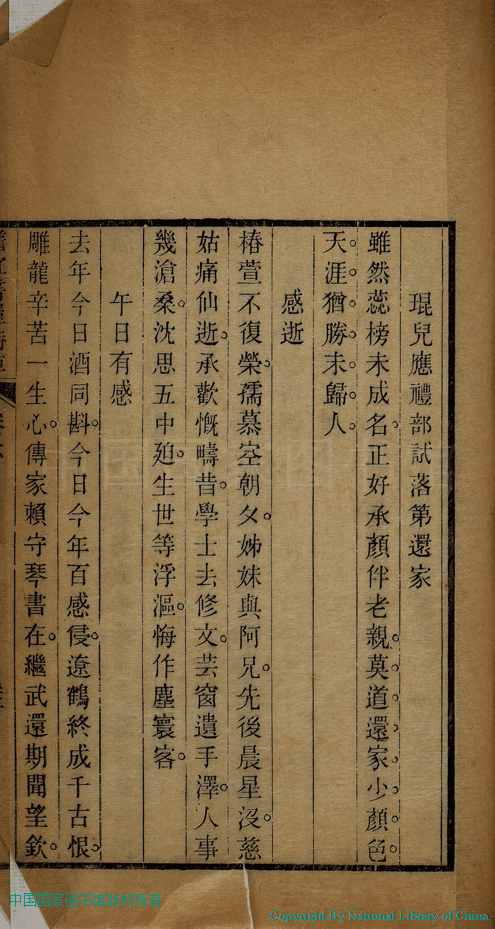 琨兒應禮部試落第還家
雖然蕊榜未成名。正好承顏伴老親。莫道還家少顏色。
天涯猶勝未歸人。
感逝
椿萱不復榮。孺慕空朝夕。姊妹與阿兄。先後晨星沒。慈
姑痛仙逝。承歡慨疇昔。學士去修文。芸窗遺手澤。人事
幾滄桑。沈思五中廹。生世等浮漚。悔作塵寰客。
午日有感
去年今日酒同斟。今日今年百感侵。遼鶴終成千古恨。
雕龍辛苦一生心。傳家賴守琴書在。繼武還期聞望欽。
Copyright By National Library of China